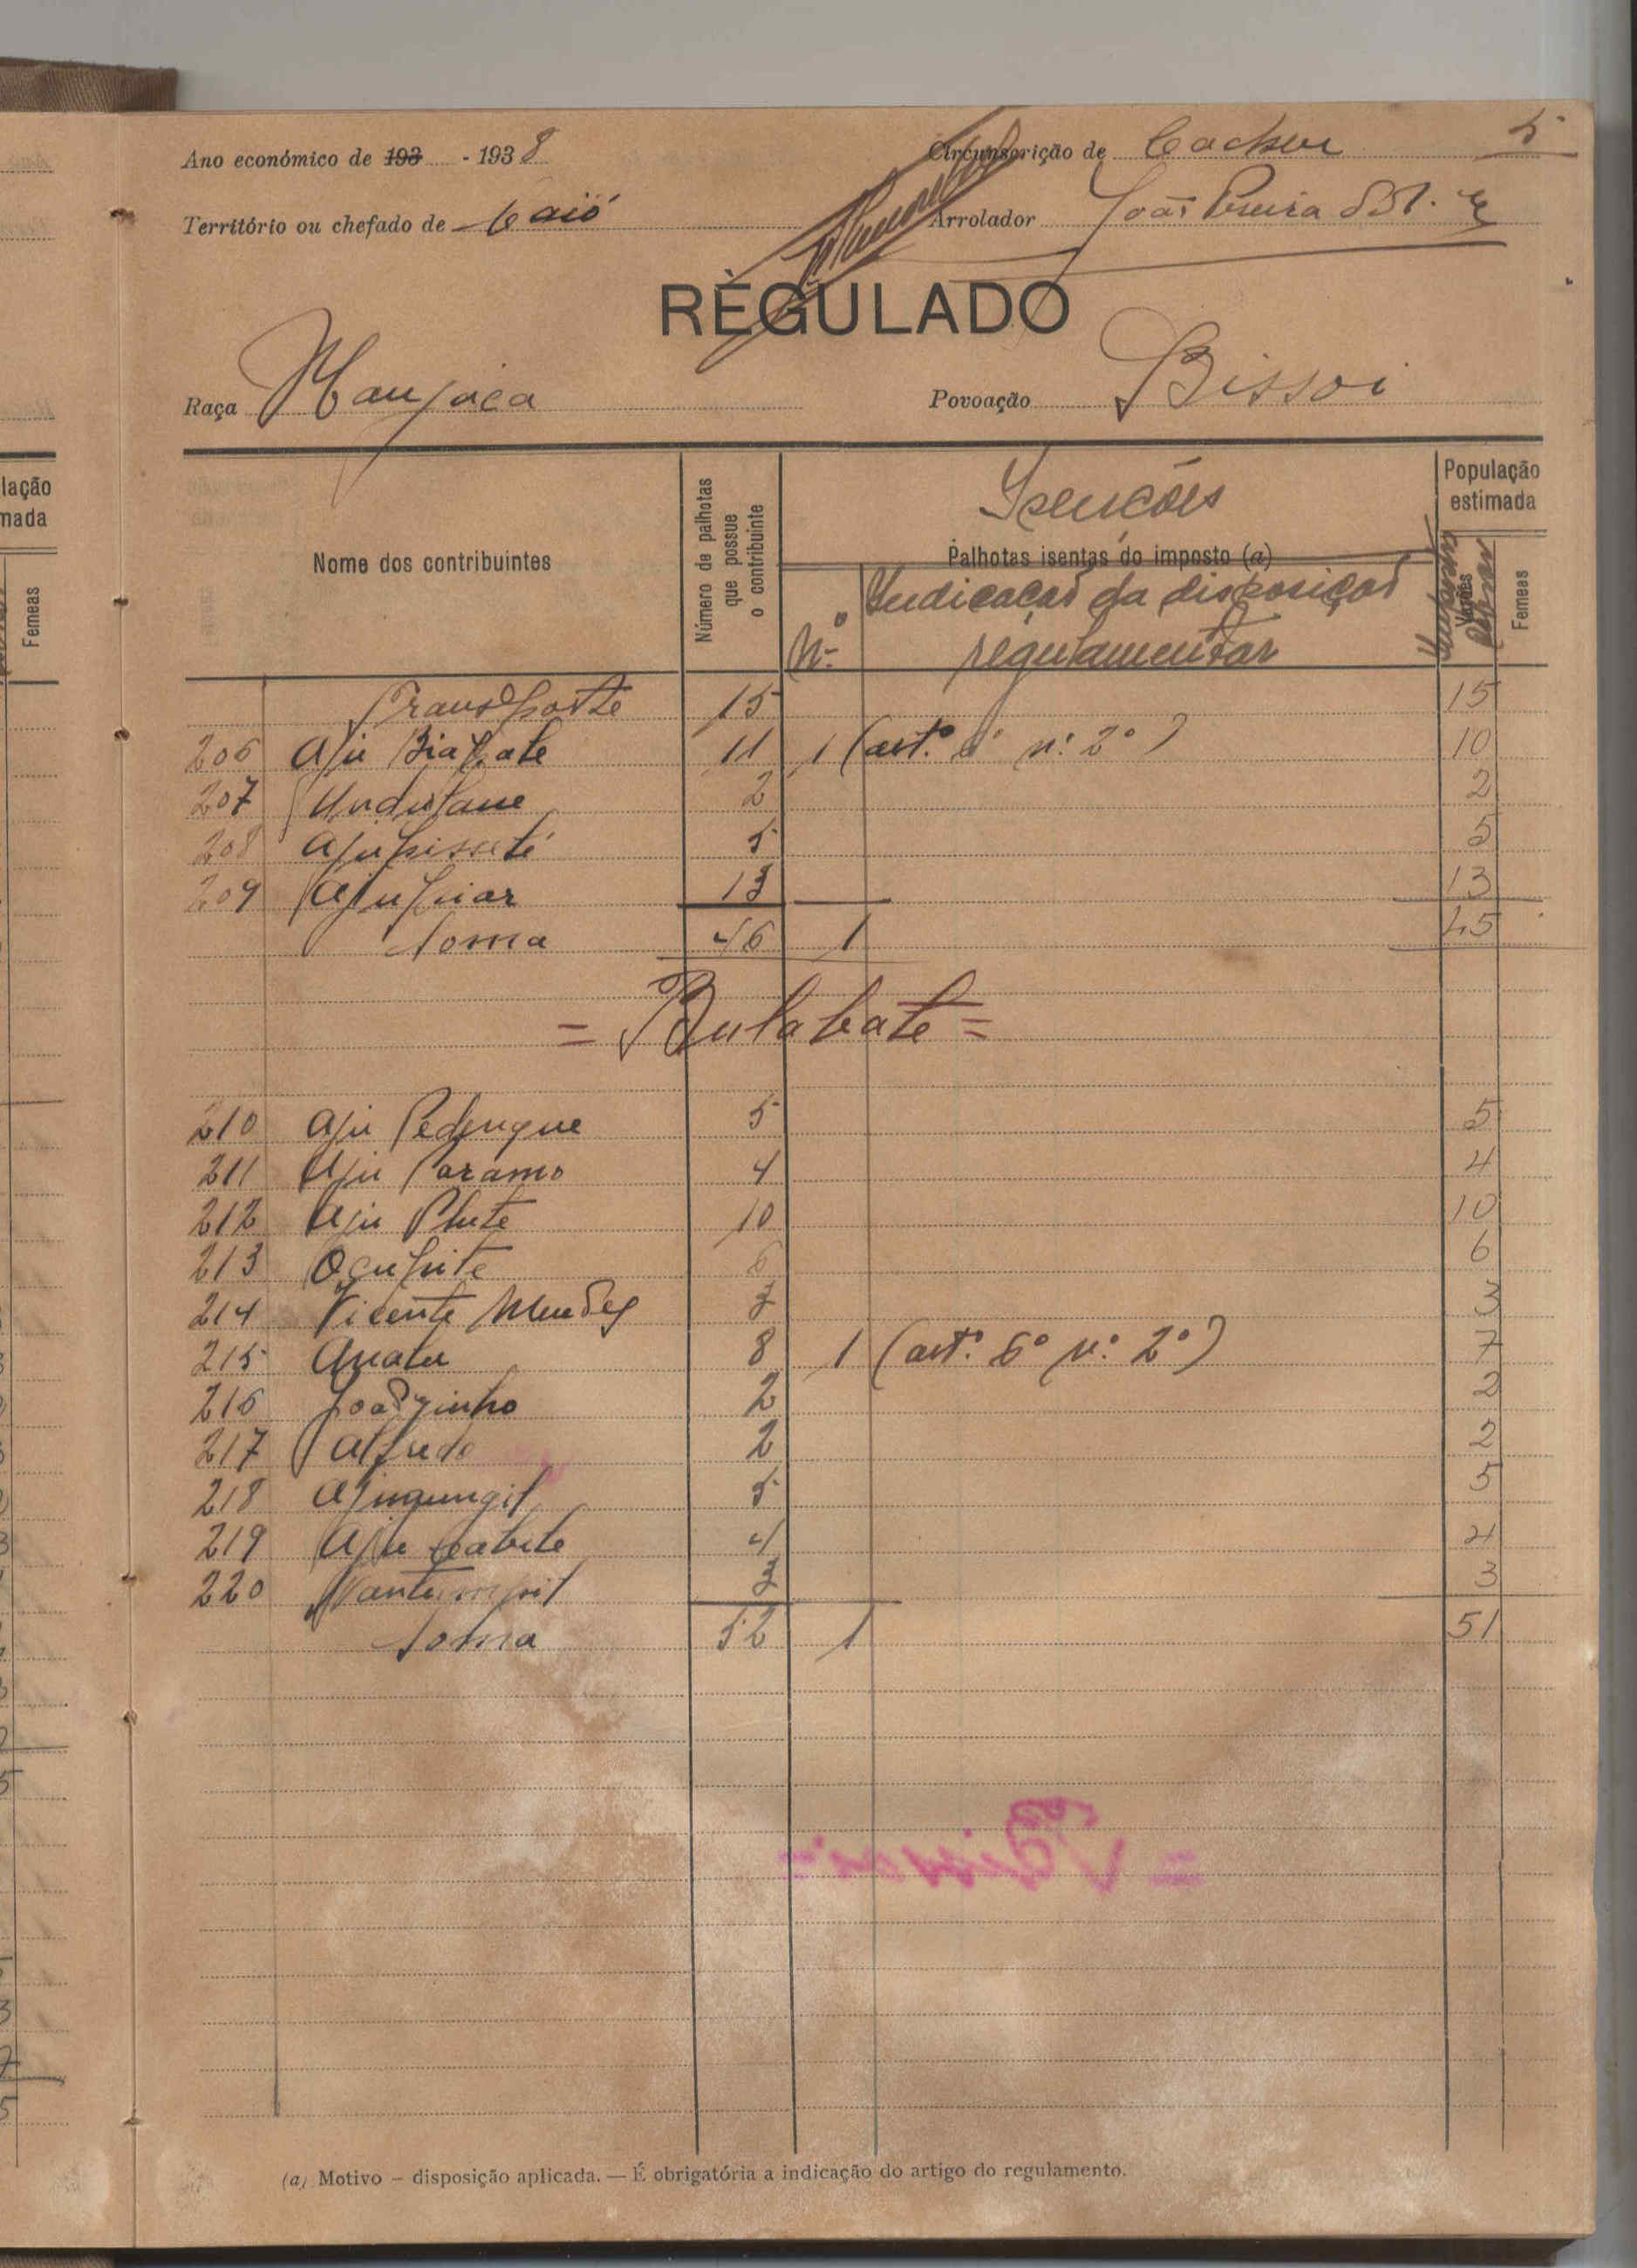 5
Ano económico de 193 - 1938 Circunscrição de Cacheu
Território ou chefado de Caió Arrolador João
REGULADO
Raça Manjaca Povoação Bissoi
Nome dos contribuintes
Número de palhotas que possue o contribuinte
Isenções
Palhotas isentas do imposto (a)
Nº Indicação da disposição
regulamentar
População estimada
Varões
Femeas
Transporte 15 15
206 Aju Biapate 11 1 (art.º 6º n.º 2º) 10
207 2 2
208 Ajupisseté 5 5
209 13 13
Soma 46 1 45
= Bulabate =
210 Aju Pedengue 5 5
211 Aju Caramo 4 4
212 Aju Plute 10 10
213 6 6
214 Vicente Mendes 3 3
215 8 1 (art.º 6º n.º 2º) 7
216 Joãozinho 2 2
217 Alfredo 2 2
218 5 5
219 Aju 4 4
220 3 3
Soma 52 1 51
(a) Motivo – disposição aplicada. — É obrigatória a indicação do artigo do regulamento.
lação
mada
Femeas